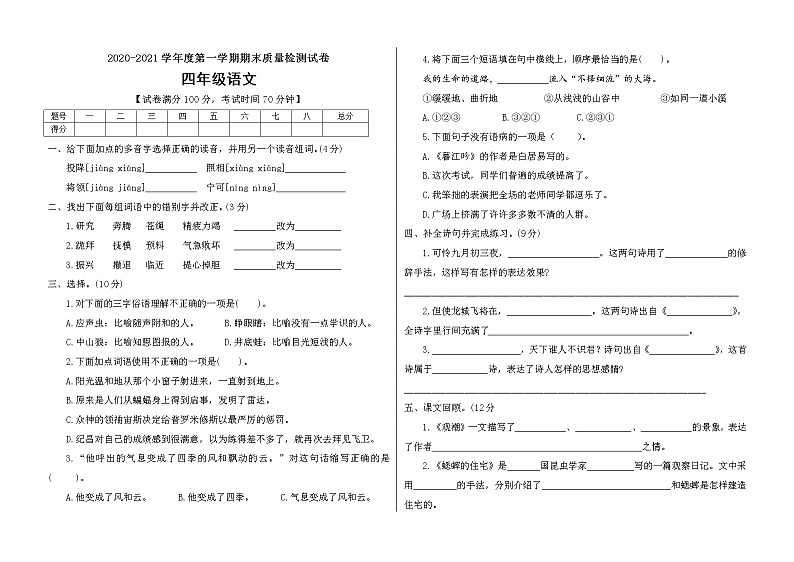 2020-2021学年度第一学期期末质量检测试卷
四年级语文
【试卷满分100分，考试时间70分钟】
题号 一 二 三 四 五 六 七 八 总分
得分
一、给下面加点的多音字选择正确的读音，并用另一个读音组词。(4分)
投降[jiàng xiáng]__________ 照相[xiàng xiāng]____________
将领[jiàng jiāng]__________ 宁可[níng nìng]______________
二、找出下面每组词语中的错别字并改正。(3分)
1.研究 奔腾 苍绳 精疲力竭 ________改为_________
2.跪拜 抚模 预料 气急败坏 ________改为_________
3.振兴 撤退 临近 提心掉胆 ________改为_________
三、选择。(10分)
1.对下面的三字俗语理解不正确的一项是( )。
A.应声虫：比喻随声附和的人。 B.睁眼瞎：比喻没有一点学识的人。
C.中山狼：比喻知恩图报的人。 D.井底蛙：比喻目光短浅的人。
2.下面加点词语使用不正确的一项是( )。
A.阳光温和地从那个小窗子射进来，一直射到地上。
B.原来是人们从蝙蝠身上得到启事，发明了雷达。
C.众神的领袖宙斯决定给普罗米修斯以最严厉的惩罚。
D.纪昌对自己的成绩感到很满意，以为练得差不多了，就再次去拜见飞卫。
3.“他呼出的气息变成了四季的风和飘动的云。”对这句话缩写正确的是
( )。
A.他变成了风和云。 B.他变成了四季。 C.气息变成了风和云。
4.将下面三个短语填在句中横线上，顺序最恰当的是( )。
我的生命的道路，__________流入“不择细流”的大海。
①缓缓地、曲折地 ②从浅浅的山谷中 ③如同一道小溪
A.①②③ B.③②① C.②③①
5.下面句子没有语病的一项是( )。
A.《暮江吟》的作者是白居易写的。
B.这次考试，同学们普遍的成绩提高了。
C.我笨拙的表演把全场的老师同学都逗乐了。
D.广场上挤满了许许多多数不清的人群。
四、补全诗句并完成练习。(9分)
1.可怜九月初三夜，__________________。这两句诗用了____________的修
辞手法，这样写有怎样的表达效果?
____________________________________________________________
2.但使龙城飞将在，________________。这两句诗出自《____________》，
全诗字里行间充满了________________________________________。
3.__________________，天下谁人不识君？诗句出自《____________》，这首
诗属于____________诗，表达了诗人怎样的思想感情?
____________________________________________________________
五、课文回顾。(12分
1.《观潮》一文描写了__________、___________、__________的景象，表达
了作者__________________________________________之情。
2.《蟋蟀的住宅》是______国昆虫学家_________写的一篇观察日记。文中采
用_________的手法，分别介绍了__________________________和蟋蟀是怎样建造
住宅的。